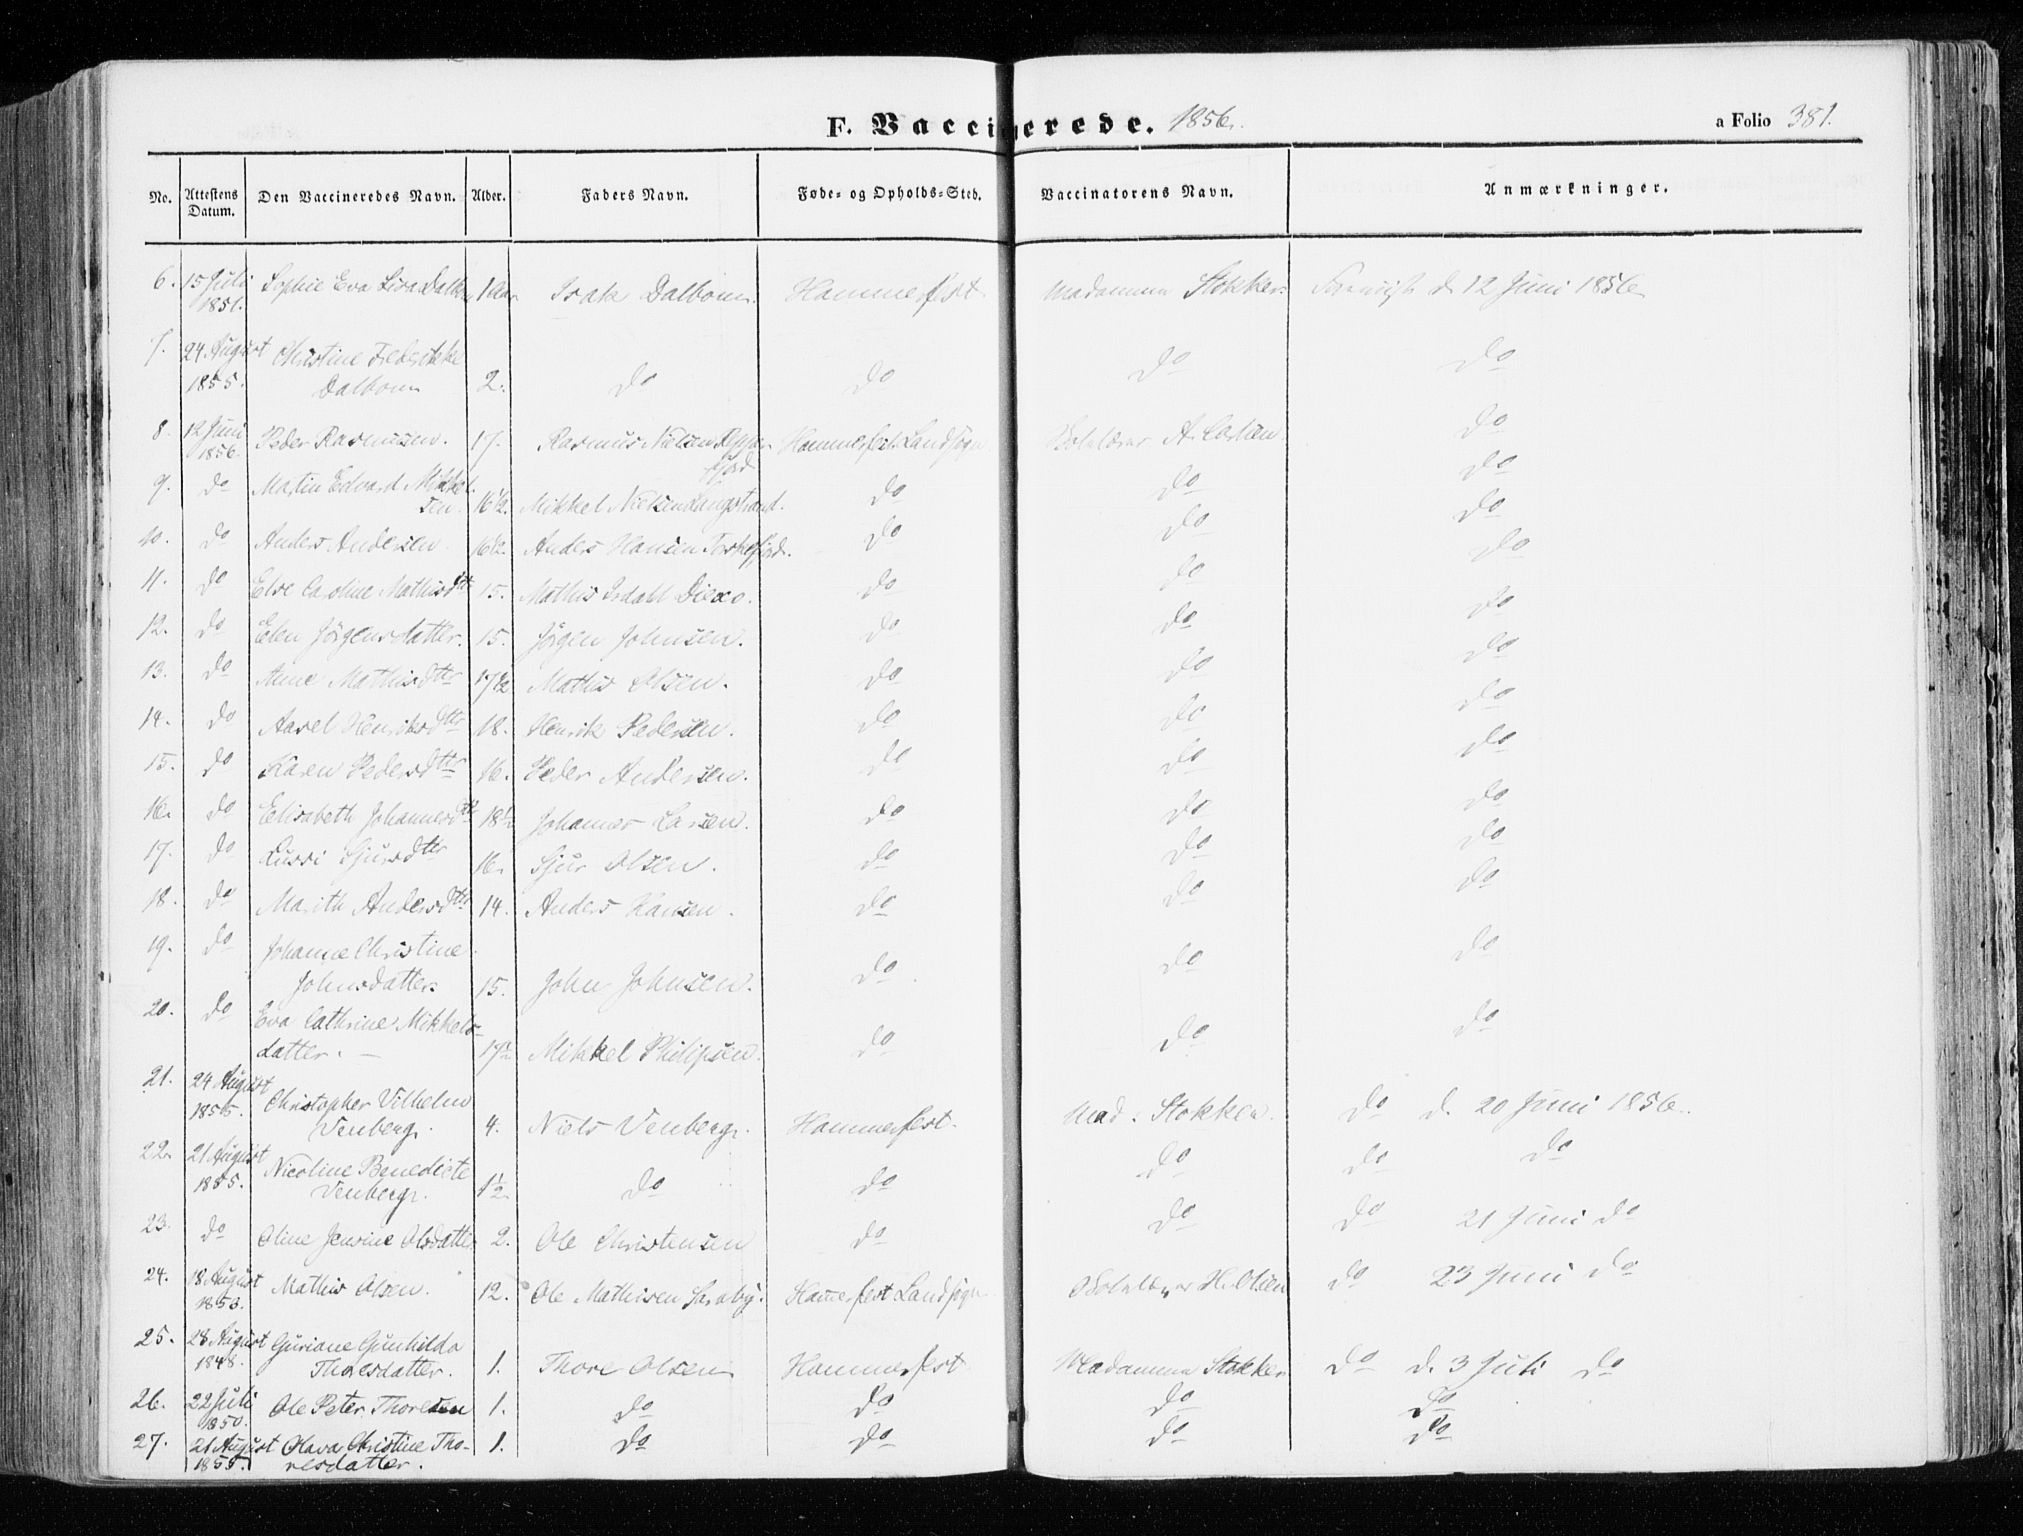 F. Vaccinerede. 1856. a Folio 381.
No. Attestens Datum. Den Vaccineredes Navn. Alder. Faders Navn. Føde- og Opholds-Sted. Vaccinatorens Navn. Anmærkninger.
6. 15 Juli 1851. Sophie Eva Dalbom 1 Aar Isak Dalbom. Hammerfest Madamme Stokken. d. 12 Juni 1856
7. 24 August Christine Frederikke
1855. Dalbom 2. do do do do
8. 12 Juni 1856 Peder Rasmussen. 17. Rasmus Nielsen Repper- Hammerfest Landsogn do
fjord
9. do Martin Edvard Mikkel-
sen. 16 1/2. Mikkel Nielsen Langstrand. do do do
10. do Anders Andersen 16 1/2. Anders Hansen do do do
11. do Else Caroline Mathisdtr 15. Mathis do do do
12. do Elen Jørgensdatter. 15. Jørgen Johnsen. do do do
13. do Anne Mathisdtr 17 1/2 Mathis Olsen. do do do
14. do Henriksdtr 18. Henrik Pedersen. do do do
15. do Karen Pedersdtr 16. Peder Andersen. do do do
16. do Elisabeth Johannesdtr 18 1/2 Johannes Larsen. do do do
17. do Lussi Sjursdtr 16. Sjur Olsen. do do do
18. do Marith Andersdtr 14. Anders Hansen. do do do
19. do Johanne Christine
Johnsdatter. 15. John Johnsen. do do do
20. do Eva Cathrine Mikkels-
datter. — 17 1/2 Mikkel Philipsen. do do do
21. 24 August
1855. Christopher Vilhelm
Venberg. 4. Niels Venberg. Hammerfest. Mad. Stokken. do d. 20 Juni 1856.
22. 21 August Nicoline Benedicte
1855. Venberg. 1 1/2. do do do do do
23. do Oline Jensine Olsdatter 2. Ole Christensen do do do 21 Juni do
24. 18 August
1853. Mathis Olsen. 12. Ole Mathisen Saraby. Hammerfest Landsogn H. Olsen do 23 Juni do
25. 28 August Guriane Gunhilda
1848. Thoresdatter. 1. Thore Olsen Hammerfest Madamme Stokken do d. 3 Juli do
26. 22 Juli
1850. Ole Peter Thoresen 1. do do do do
27. 21 August Olava Christine Tho- 1. do do do do
1855. resdatter.